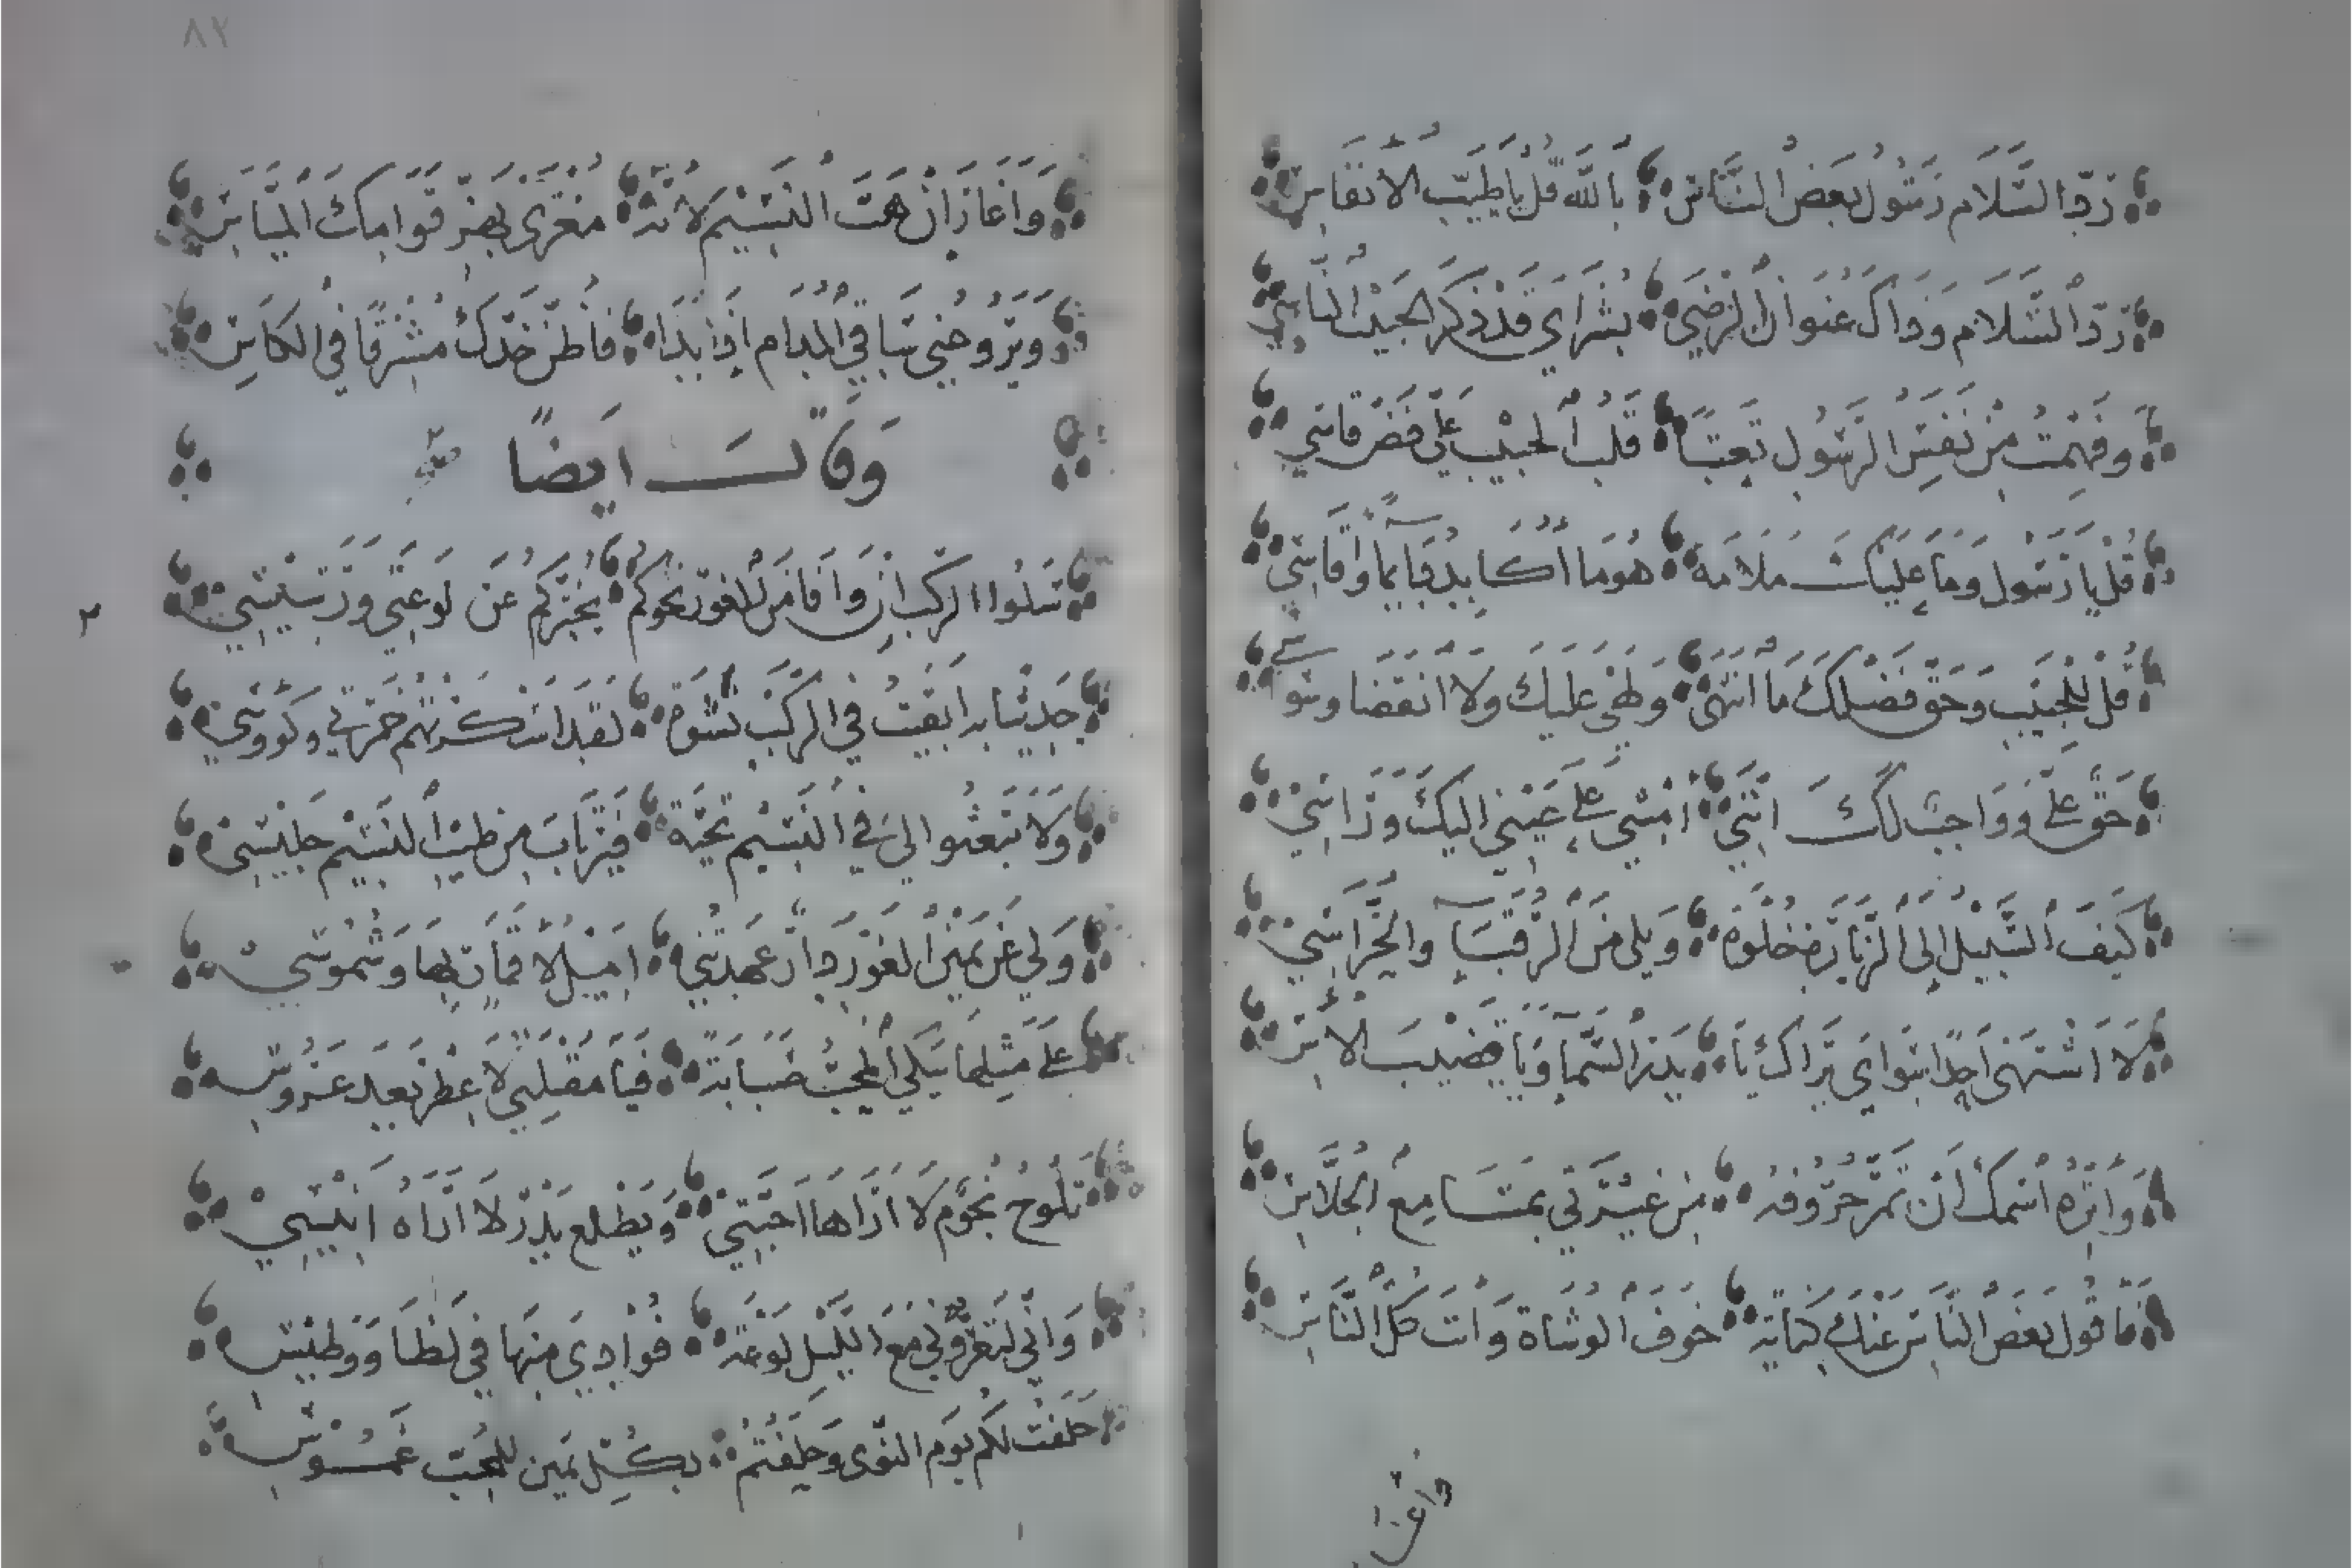 رَدَّ السَّلَامَ رَسُولُ بَعضِ النَّاسِ بِاللهِ قُل يَا طَيِّبَ الأَنفَاسِ
رَدَّ السَّلَامَ وَذَاكَ عُنوَانُ الرِّضَى بُشرَايَ قَد ذَكَرَ الحَبِيبُ النَّاسِي
وَفَهِمتُ مِن نَفَسِ الرَّسُولِ تَعَتُّبًا قَلبُ الحَبِيبِ عَلَيَّ فَضٌّ قَاسِي
قُل يَا رَسُولُ وَمَا عَلَيكَ مَلَامَةٌ هُوَ مَا أُكَابِدُ فِيهِ مَا وَأُقَاسِي
قُل لِلحَبِيبِ وَحَقِّ فَضلِكَ مَا انتَهَى وَلَهِي عَلَيكَ وَلَا انقَضَا وَسوَاسِي
حَقٌّ عَلَيَّ وَوَاجِبٌ لَكَ أَنَّنِي أَمشِي عَلَى عَينِي إِلَيكَ وَرَاسِي
كَيفَ السَّبِيلُ إِلَى الزِّيَارَةِ خُلوَةً وَيلِي مِنَ الرُّقَبَآءِ وَالحُرَّاسِ
لَا أَشتَهِي أَحَدًا سِوَايَ يَرَاكَ يَا بَدرَ السَّمَا وَيَا قَضِيبَ الآسِ
وَأُنَزِّهُ اسمَكَ أَن تَمُرَّ حُرُوفُهُ مِن غَيرَتِي بِمَسَامِعِ الجُلَّاسِ
فَأَقُولُ بَعضُ النَّاسِ عَنكَ كِنَايَةً خَوفَ الوُشَاةِ وَأَنتَ كُلُّ النَّاسِ
وَأَغَارُ
وَأَغَارُ إِن هَبَّ النَّسِيمُ لِأَنَّهُ مُغرًى بِهَزِّ قَوَامِكَ المَيَّاسِ
وَيَرُوعُنِي سَاقِي المُدَامِ إِذَا بَدَا فَأَظُنُّ خَدَّكَ مُشرِقًا فِي الكَاسِ
وَقَالَ أَيضًا
سَلُوا الرَّكبَ إِن وَافَا مِنَ الغَورِ نَحوَكُم يُخَبِّركُمُ عَن لَوعَتِي وَرَسِيسِي
حَدِيثًا بِهِ أَبقَيتُ فِي الرَّكبِ نَشوَةً لَقَد أَسكَرَتهُم خَمرَتِي وَكُؤُوسِي
وَلَا تَبعَثُوا لِي فِي النَّسِيمِ تَحِيَّةً فَيَرتَابَ مِن طِيبِ النَّسِيمِ جَلِيسِي
وَلِي عَن يَمِينِ الغَورِ دَارٌ عَهِدتُنِي أَمِيلُ لِأَقمَارٍ بِهَا وَشُمُوسِ
عَلَى مِثلِهَا يَبكِي المُحِبُّ صَبَابَةً فَيَا مُقلَتِي لَا عِطرَ بَعدَ عَرُوسِ
تَلُوحُ نُجُومٌ لَا أَرَاهَا أَحِبَّتِي وَيَطلَعُ بَدرٌ لَا أَرَاهُ أَنِيسِي
وَإِنِّي لَتَعرُونِي مَعَ اللَّيلِ لَوعَةٌ فُؤَادِي مِنهَا فِي لَظًا وَوَطِيسِ
حَلَفتُ لَكُم يَومَ النَّوَى وَحَلَفتُمُ بِكُلِّ يَمِينٍ لِلمُحِبِّ غَمُوسِ